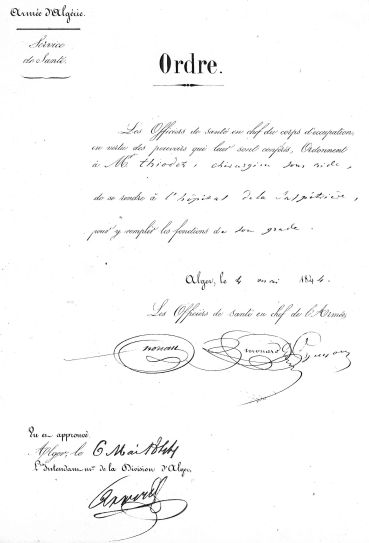 Armée d'Algérie.
Service
de Santé.
Ordre.
Les Officiers de santé en chef du corps d'occupation,
en vertu des pouvoirs qui leur sont conférés, Ordonnent
à Mr thiodet, chirurgien sous aide,
de se rendre à l'hôpital de la Salpétrière,
pour y remplir les fonctions de son grade.
Alger, le 4 mai 1844.
Les Officiers de santé en chef de l'Armée,
monard
Vu et approuvé
Alger, le 6 Mai 1844
L'Intendant mre de la Division d'Alger,